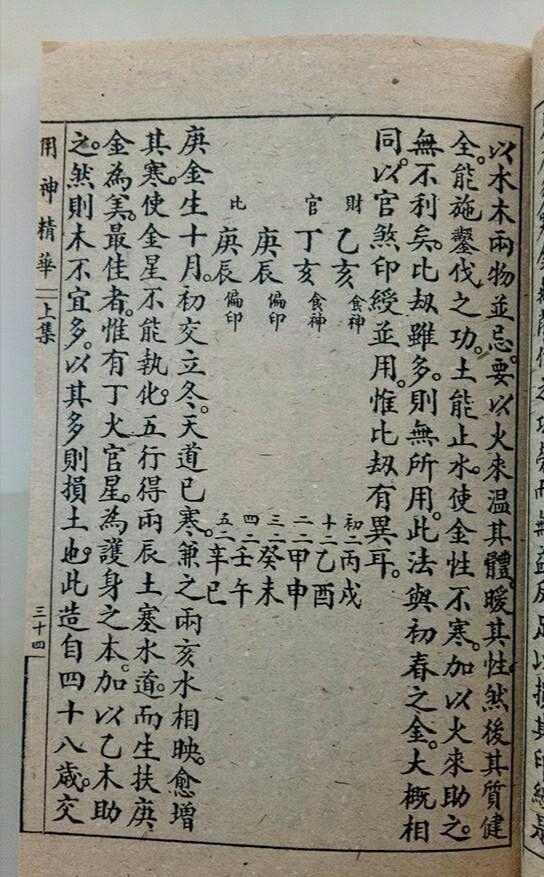 以水木兩物並忌。要以火來温其體。暖其性。然後其質健
全。能施鑿伐之功。土能止水。使金性不寒。加以火來助之。
無不利矣。比刼雖多。則無所用。此法與初春之金。大概相
同。以官煞印綬並用。惟比刼有異耳。
財 乙亥 食神 初二 丙戌
官 丁亥 食神 十二 乙酉
庚辰 偏印 二二 甲申
比 庚辰 偏印 三二 癸未
四二 壬午
五二 辛巳
庚金生十月。初交立冬。天道已寒。兼之兩亥水相映。愈增
其寒。使金星不能執化。五行得兩辰土塞水道。而生扶庚
金為美。最佳者。惟有丁火官星。為護身之本。加以乙木助
之。然則木不宜多。以其多則損土也。此造自四十八歲。交
用神精華 上集 三十四